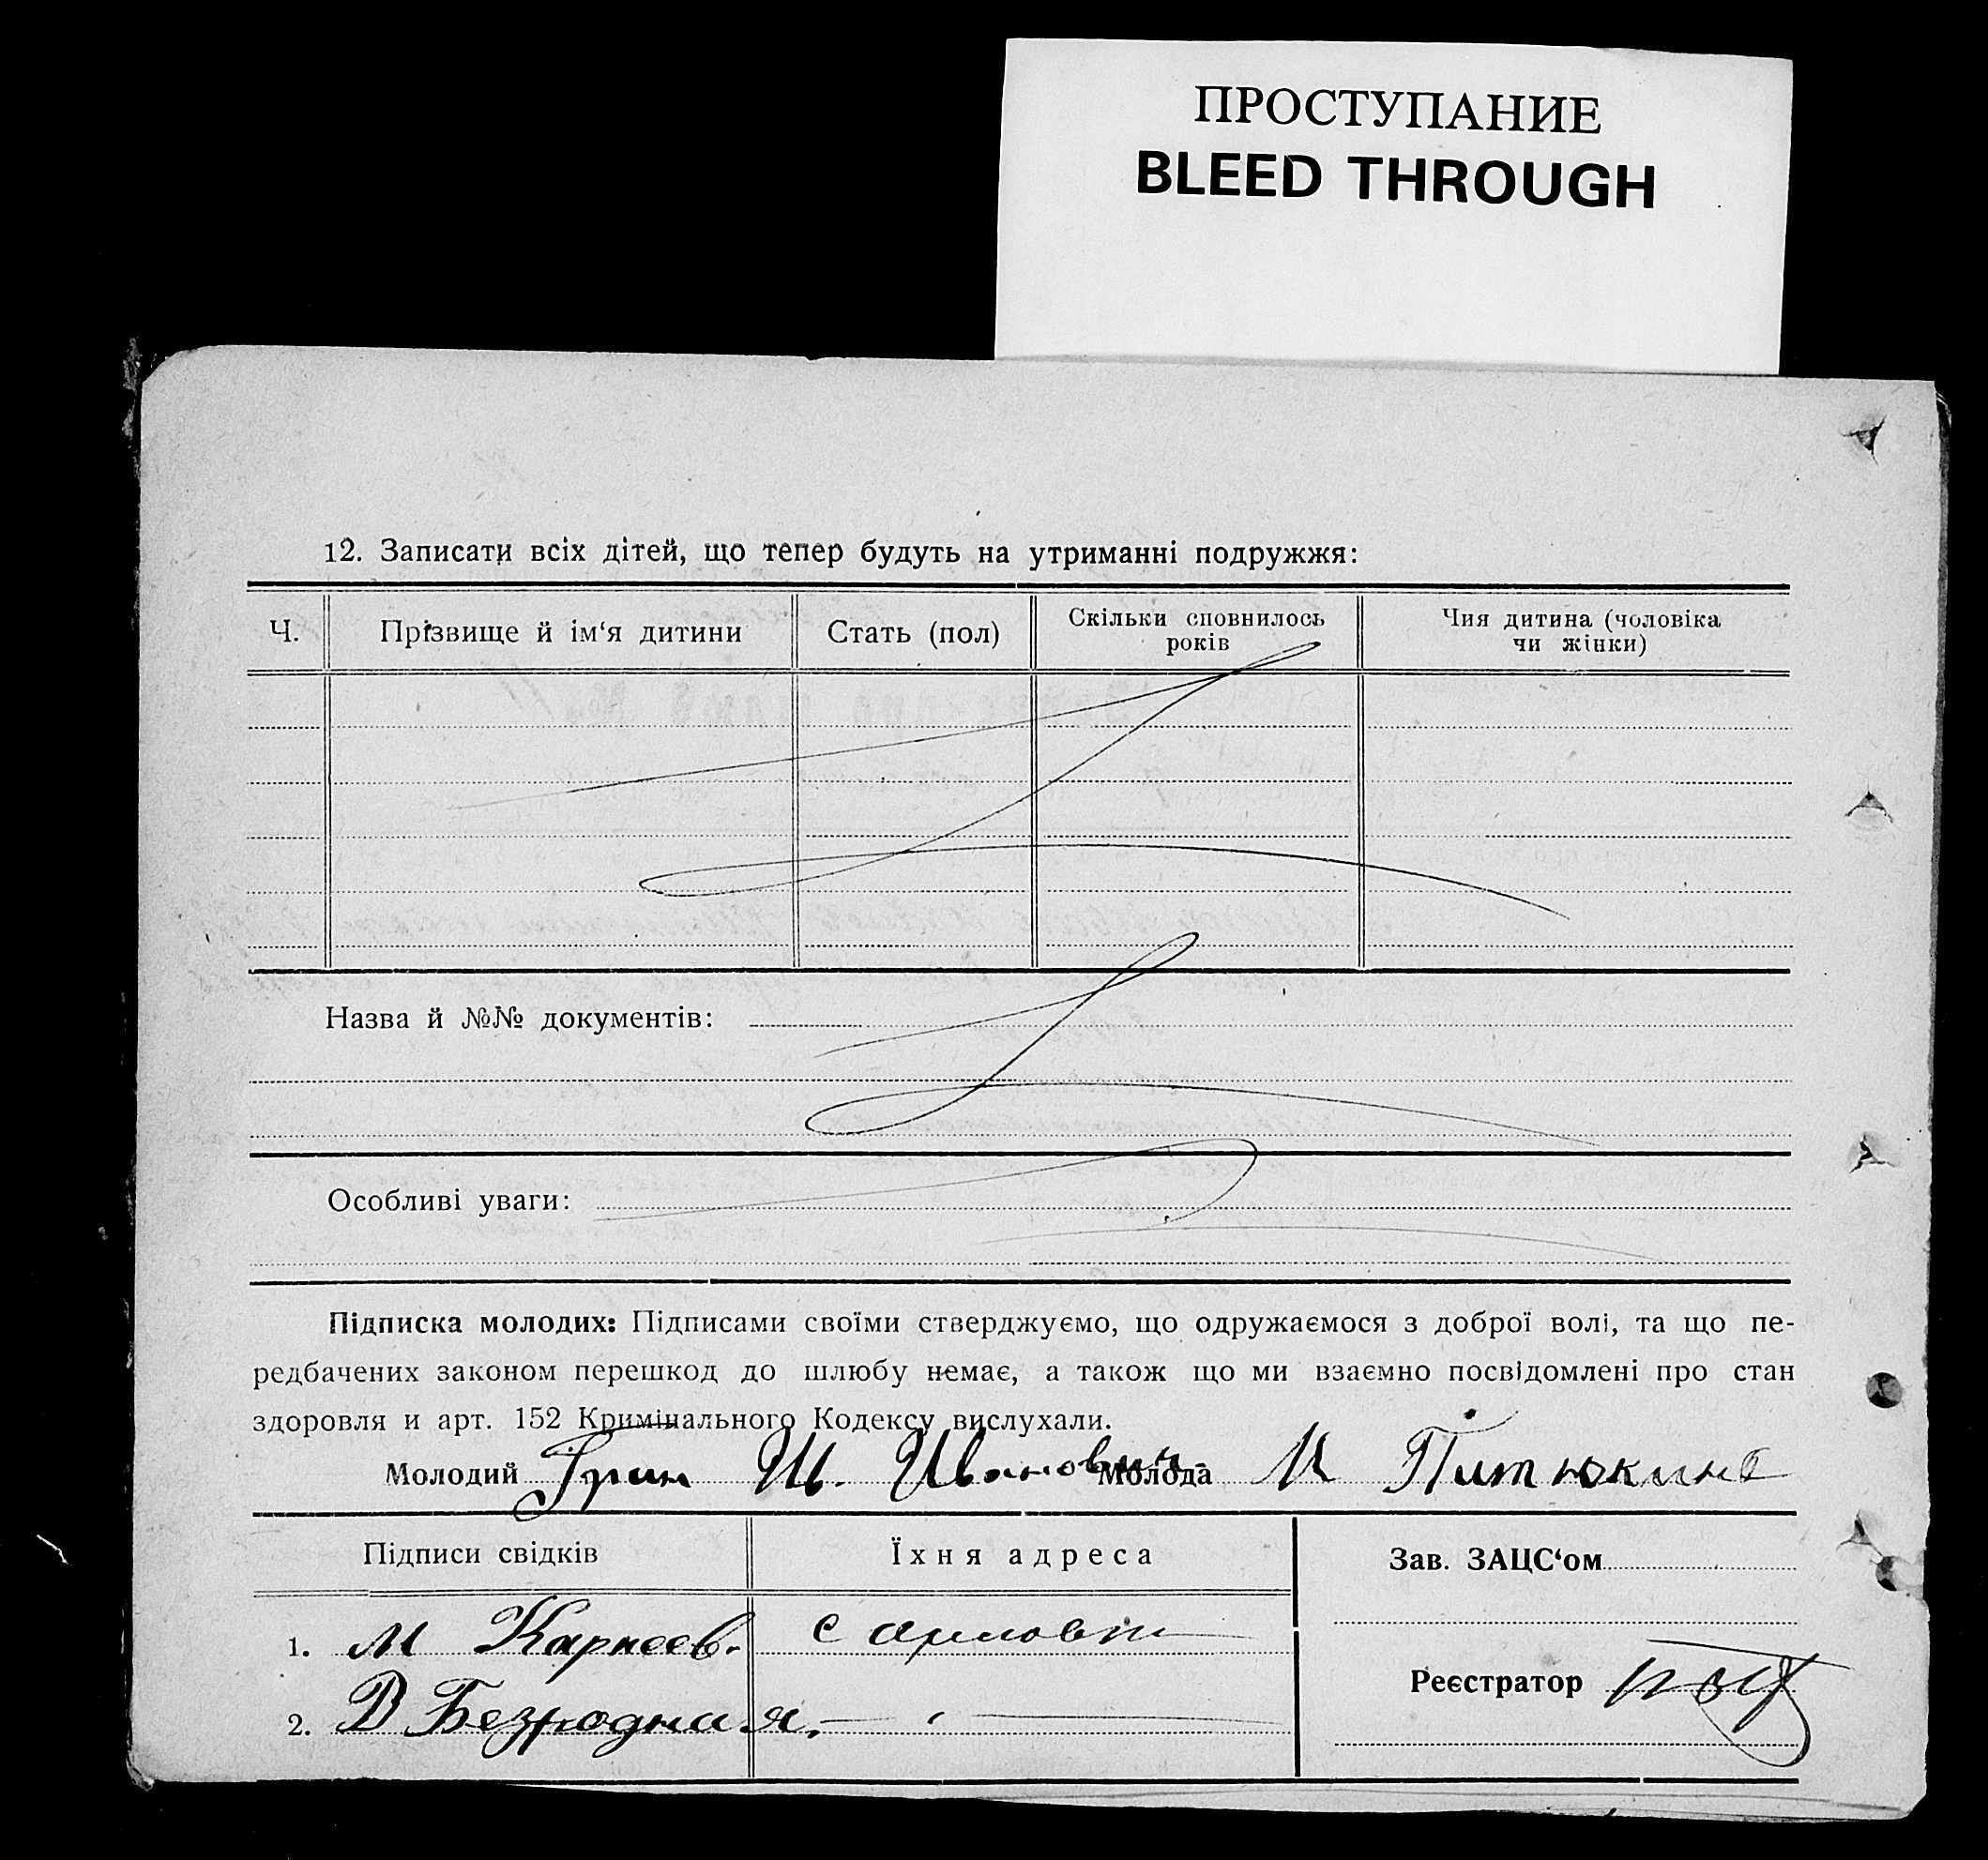 ПРОСТУПАНИЕ
BLEED THROUGH
12. Записати всіх дітей, що тепер будуть на утриманні подружжя:
Ч.
Прізвище й ім‘я дитини
Стать (пол)
Скільки сповнилось
років
Чия дитина (чоловіка
чи жінки)
Назва й №№ документів:
Особливі уваги:
Підписка молодих: Підписами своїми стверджуємо, що одружаємося з доброї волі, та що пе-
редбачених законом перешкод до шлюбу немає, а також що ми взаємно посвідомлені про стан
здоровля и арт. 152 Кримінального Кодексу вислухали.
Молодий Ш. Иванович Молода
Підписи свідків
Їхня адреса
Зав. ЗАЦС‘ом
1. М Карпеев. с
Реєстратор
2. В Безродная.